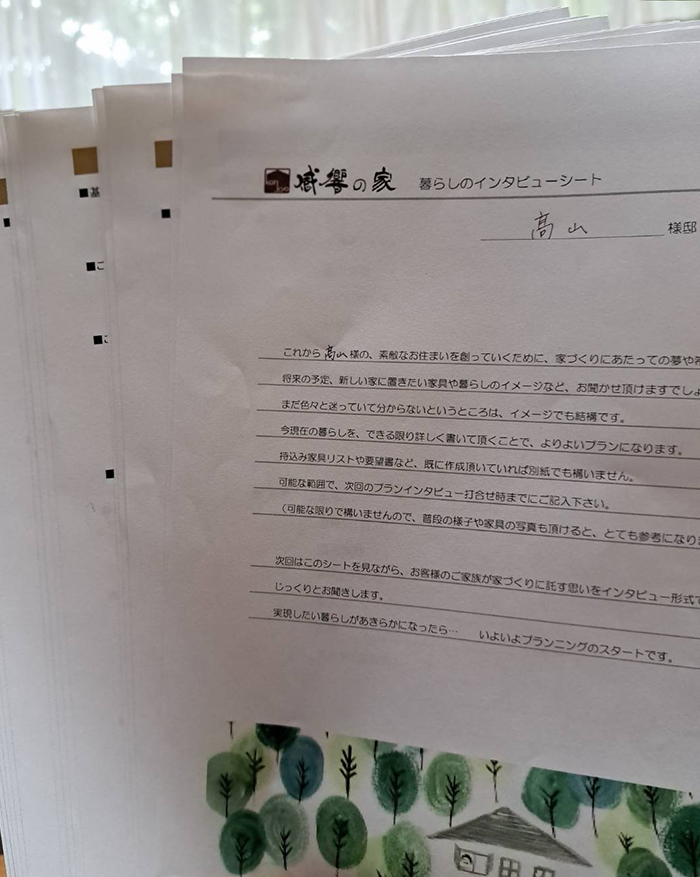 感響の家 暮らしのインタビューシート
高山 様邸
これから高山様の、素敵なお住まいを創っていくために、家づくりにあたっての夢や
将来の予定、新しい家に置きたい家具や暮らしのイメージなど、お聞かせ頂けますでしょ
まだ色々と迷っていて分からないというところは、イメージでも結構です。
今現在の暮らしを、できる限り詳しく書いて頂くことで、よりよいプランになります。
持込み家具リストや要望書など、既に作成頂いていれば別紙でも構いません。
可能な範囲で、次回のプランインタビュー打合せ時までにご記入下さい。
（可能な限りで構いませんので、普段の様子や家具の写真も頂けると、とても参考になり
次回はこのシートを見ながら、お客様のご家族が家づくりに託す思いをインタビュー形式で
じっくりとお聞きします。
実現したい暮らしがあきらかになったら… いよいよプランニングのスタートです。
■基
■こ